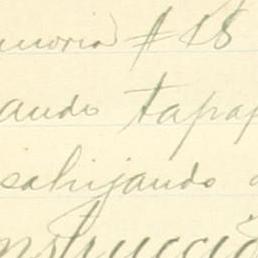 moria # 18
ando tapap
sahijando a
nstrucció